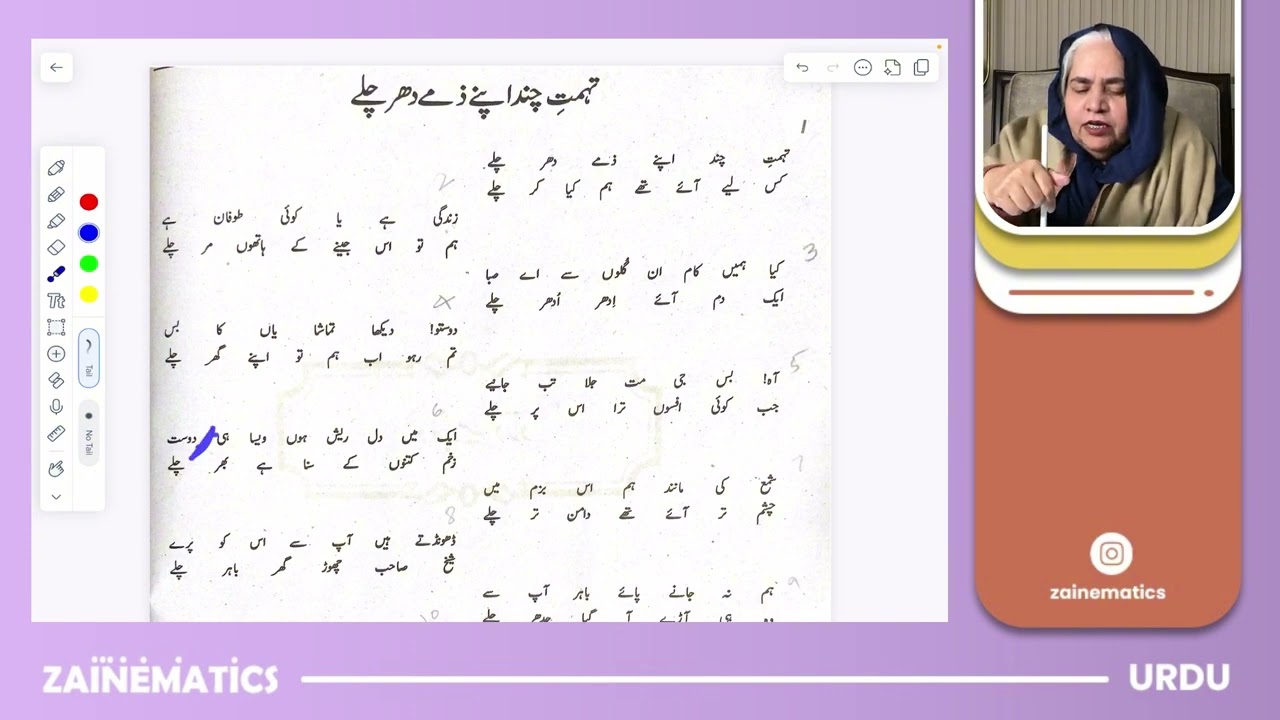 تہمتِ چند اپنے ذمے دھر چلے
1
تہمتِ چند اپنے ذمے دھر چلے
کس لیے آئے تھے ہم کیا کر چلے
2
زندگی ہے یا کوئی طوفان ہے
ہم تو اس جینے کے ہاتھوں مر چلے
3
کیا ہمیں کام ان گُلوں سے اے صبا
ایک دم آئے اِدھر اُدھر چلے
4
دوستو! دیکھا تماشا یاں کا بس
تم رہو اب ہم تو اپنے گھر چلے
5
آہ! بس جی مت جلا تب جانیے
جب کوئی افسوں ترا اس پر چلے
6
ایک میں دل ریش ہوں ویسا ہی دوست
زخم کتنوں کے سنا ہے بھر چلے
7
شمع کی مانند ہم اس بزم میں
چشم تر آئے تھے دامن تر چلے
8
ڈھونڈتے ہیں آپ سے اس کو پرے
شیخ صاحب چھوڑ گھر باہر چلے
9
ہم نہ جانے پائے باہر آپ سے
وہ ہی آڑے آ گیا جدھر چلے
10
Tt
Tail
No Tail
zainematics
ZAINEMATICS
URDU